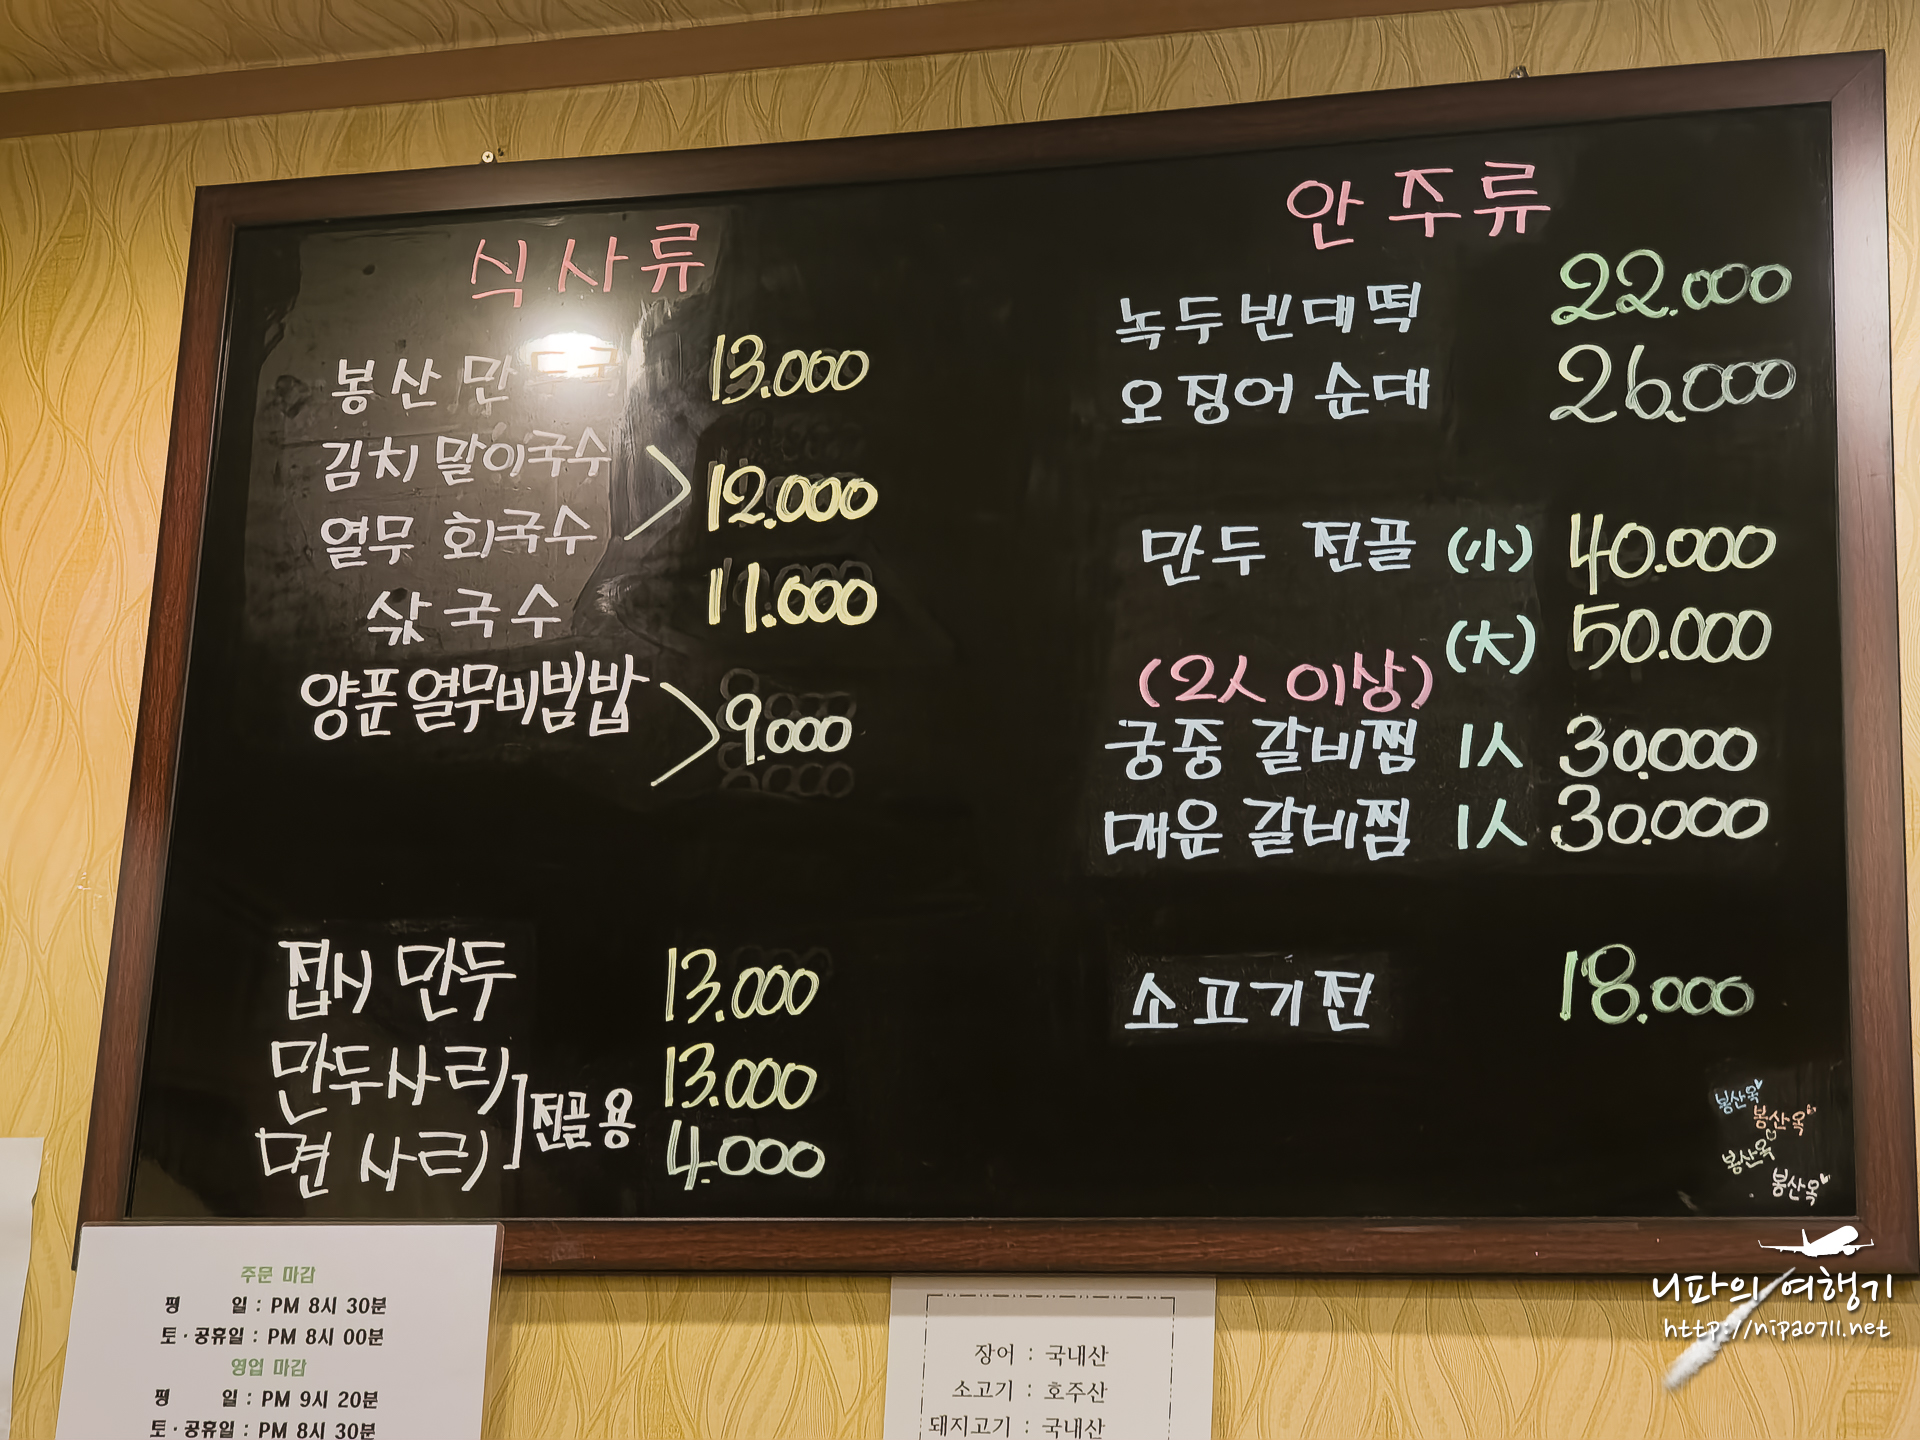 식사류
봉산 만두국 13.000
김치말이국수
열무 회국수 12.000
삯국수 11.000
양푼열무비빔밥 9.000
접시 만두 13.000
만두사리 13.000
면 사리 4.000
전골용
안주류
녹두빈대떡 22.000
오징어순대 26.000
만두 전골 (小) 40.000
(大) 50.000
(2人 이상)
궁중 갈비찜 1人 30.000
매운 갈비찜 1人 30.000
소고기전 18.000
봉산옥
봉산옥
봉산옥
봉산옥
주문 마감
평 일 : PM 8시 30분
토·공휴일 : PM 8시 00분
영업 마감
평 일 : PM 9시 20분
토·공휴일 : PM 8시 30분
장어 : 국내산
소고기 : 호주산
돼지고기 : 국내산
니파의 여행기
http://nipa0711.net